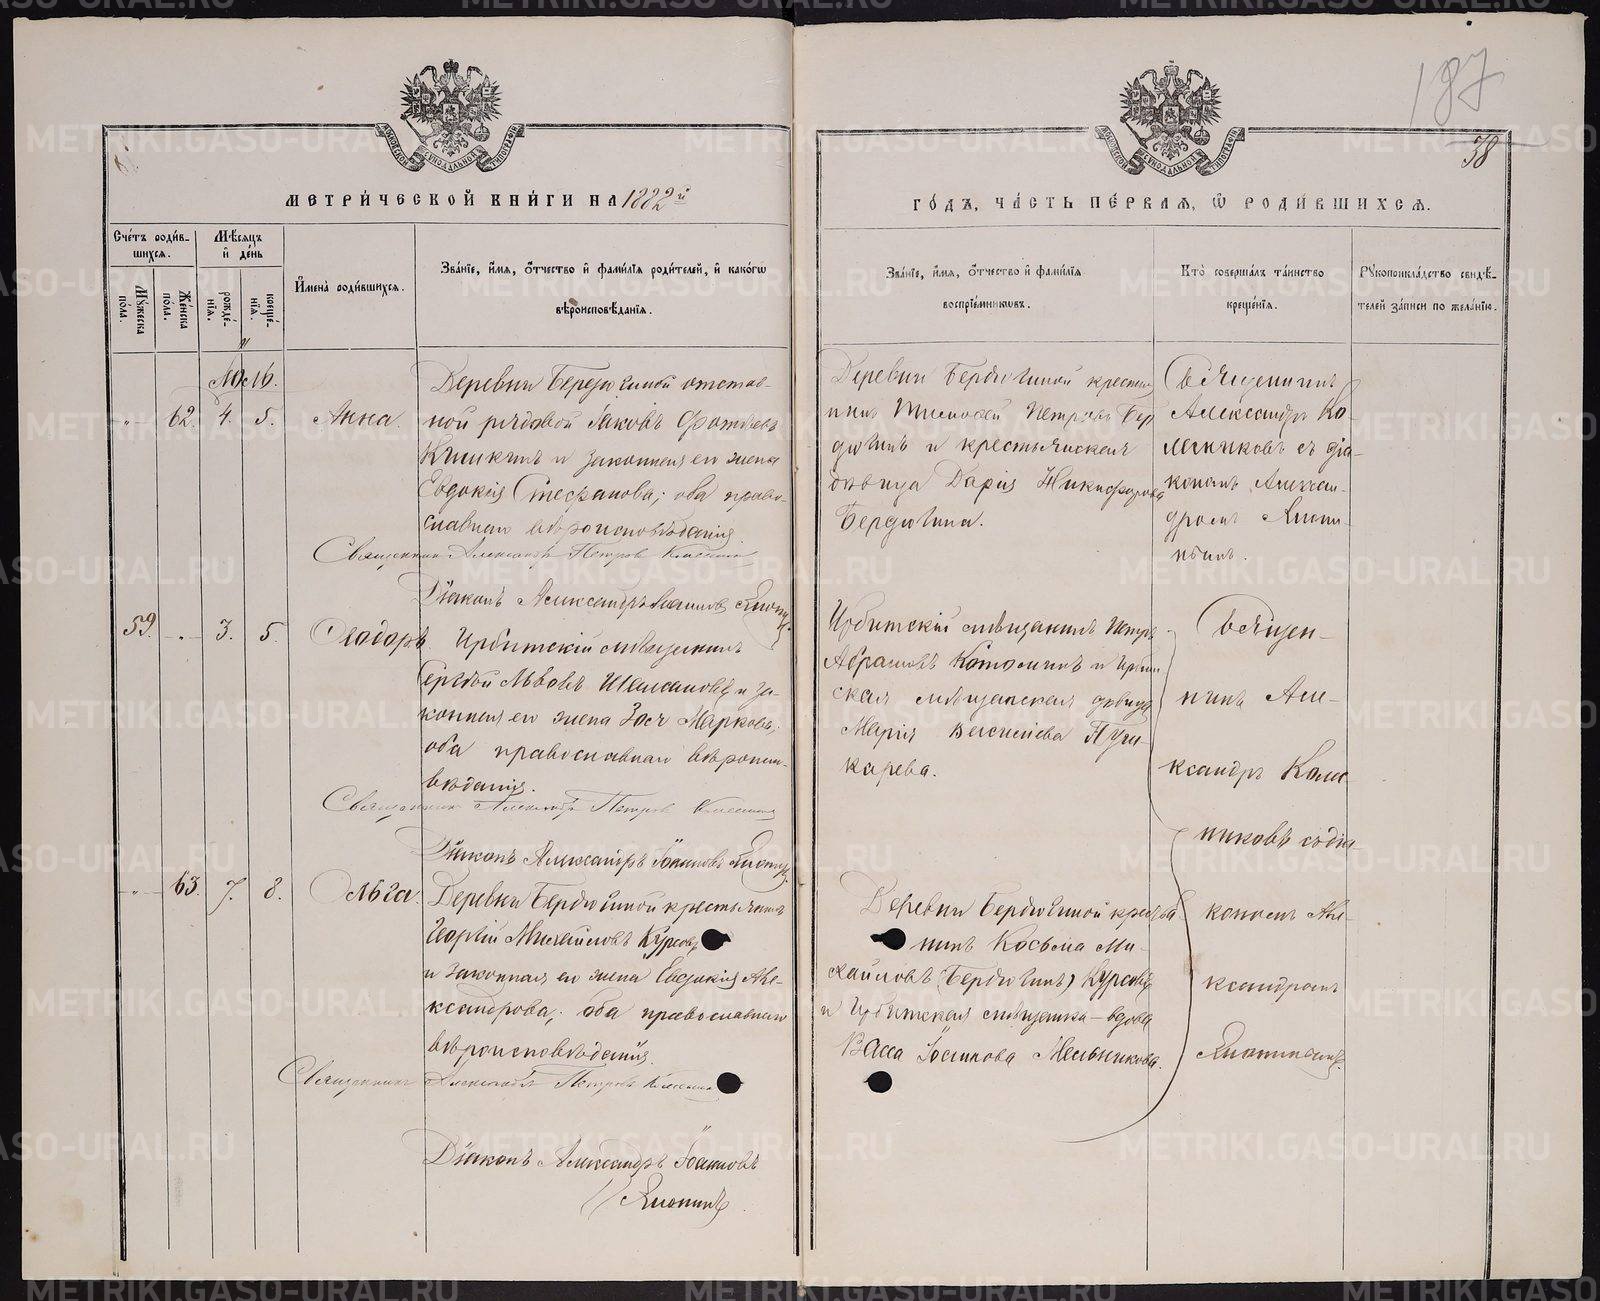 187
38
МЕТРИ́ЧЕСКОЙ КНИ́ГИ НА 1882й
ГО́ДЪ, ЧА́СТЬ ПЕ́РВАЯ, Ѡ РОДИ́ВШИХСЯ.
Сче́тъ роди́в-
шихся.
Мѣ́сяцъ
и҆ де́нь
Мꙋ́жеска по́ла.
Же́нска по́ла.
рожде́-
нїя.
креще́-
нїя.
И҆мена̀ роди́вшихся.
Зва́нїе, и҆́мя, ѻ҆́тчество и҆ фами́лїя роди́телей, и҆ како́гѡ
вѣроисповѣ́данїя.
Зва́нїе, и҆́мя, ѻ҆́тчество и҆ фами́лїя
воспрїе́мникѡвъ.
Кто̀ соверша́лъ та́инство
креще́нїя.
Рꙋкоприкла́дство свидѣ́-
телей за́писи по жела́нїю.
62. 4. 5. Анна.
Деревни Бердюгиной отстав-
ной рядовой Іаковъ
и законная его жена
Евдокія Стефанова; оба право-
славнаго вѣроисповѣданія.
Священник Александр Петров
Діаконъ Александръ Іоанновъ
Деревни Бердюгиной крестья
нинъ Тимофей Петровъ Бер
дюгинъ и крестьянская
дѣвица Дарія Никифорова
Бердюгина.
Священникъ
Александръ Ко-
лесниковъ съ діа-
кономъ Алексан-
дромъ
59. 3. 5. Ѳеодоръ
Ирбитскій мѣщанинъ
Сергѣй Львовъ Шалановъ и за-
конная его жена Зоя Маркова;
оба православнаго вѣроиспо-
вѣданія.
Священник Александр Петров
Діаконъ Александръ Іоанновъ
Ирбитскій мѣщанинъ Петръ
Абрамовъ и Ирбит
ская мѣщанская дѣвица
Марія Васильева Пуш-
карева.
Священ-
никъ Але-
ксандръ Колес
никовъ съ діа-
кономъ Але-
ксандромъ
63. 7. 8. Ольга.
Деревни Бердюгиной крестьянинъ
Георгій Михайловъ Курсовъ
и законная его жена Евдокія Але-
ксандрова; оба православнаго
вѣроисповѣданія.
Священникъ Александръ Петровъ
Діаконъ Александръ Іоанновъ
Деревни Бердюгиной крестья
нинъ Косьма Ми-
хайловъ (Бердюгинъ) Курсовъ
и Ирбитская мѣщанка-вдова
Васса Іосипова Мельникова.
METRIKI.GASO-URAL.RU